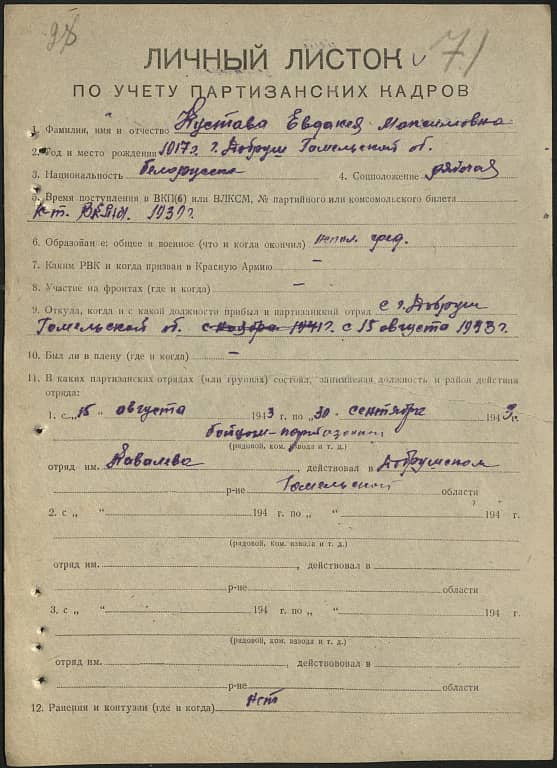 71
ЛИЧНЫЙ ЛИСТОК
ПО УЧЕТУ ПАРТИЗАНСКИХ КАДРОВ
1. Фамилия, имя и отчество Кустава Евдакея Максимовна
2. Год и место рождения 1917 г. г. Добруш Гомельской об.
3. Национальность белорусска 4. Соцположение рабочая
5. Время поступления в ВКП(б) или ВЛКСМ, № партийного или комсомольского билета
1939 г.
6. Образование: общее и военное (что и когда окончил) непол. сред.
7. Каким РВК и когда призван в Красную Армию —
8. Участие на фронтах (где и когда) —
9. Откуда, когда и с какой должности прибыл в партизанский отряд с г. Добруш
Гомельской об. с ноября 1941 г. с 15 августа 1943 г.
10. Был ли в плену (где и когда) —
11. В каких партизанских отрядах (или группах) состоял, занимаемая должность и район действия
отряда:
1. с „15 “ августа 1943 г. по „30 “ сентября 1943 г.
бойцом-партизаном
(рядовой, ком. взвода и т. д.)
отряд им. Ковалева, действовал в Добрушском
р-не Гомельской области
2. с „ “ 194 г. по „ “ 194 г.
(рядовой, ком. взвода и т. д.)
отряд им. , действовал в
р-не области
3. с „ “ 194 г. по „ “ 194 г.
(рядовой, ком. взвода и т. д.)
отряд им. , действововал в
р-не области
12. Ранения и контузии (где и когда) нет